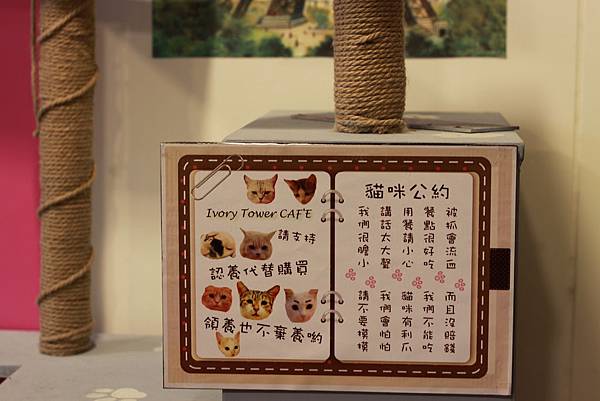 Ivory Tower CAF'E
請支持
認養代替購買
領養也不棄養喲
貓咪公約
我們很膽小
請不要摸摸
講話大大聲
我們會怕怕
用餐請小心
貓咪有利爪
餐點很好吃
我們不能吃
被抓會流血
而且沒賠錢